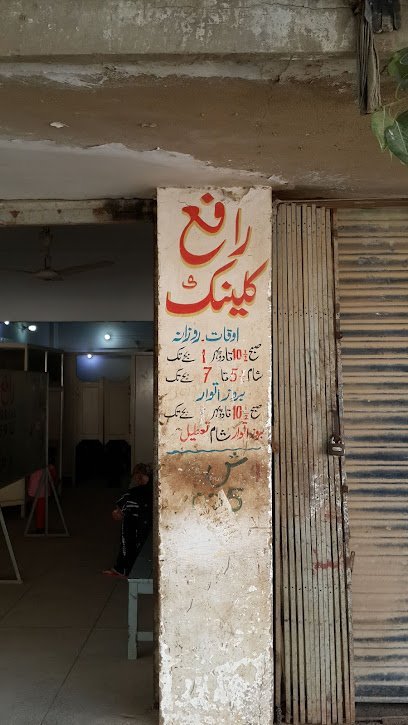 رافع
کلینک
اوقات۔ روزانہ
صبح 10½ تا دوپہر 1 بجے تک
شام 5½ تا 7 بجے تک
بروز اتوار
صبح 10½ تا دوپہر 1 بجے تک
بروز اتوار شام تعطیل